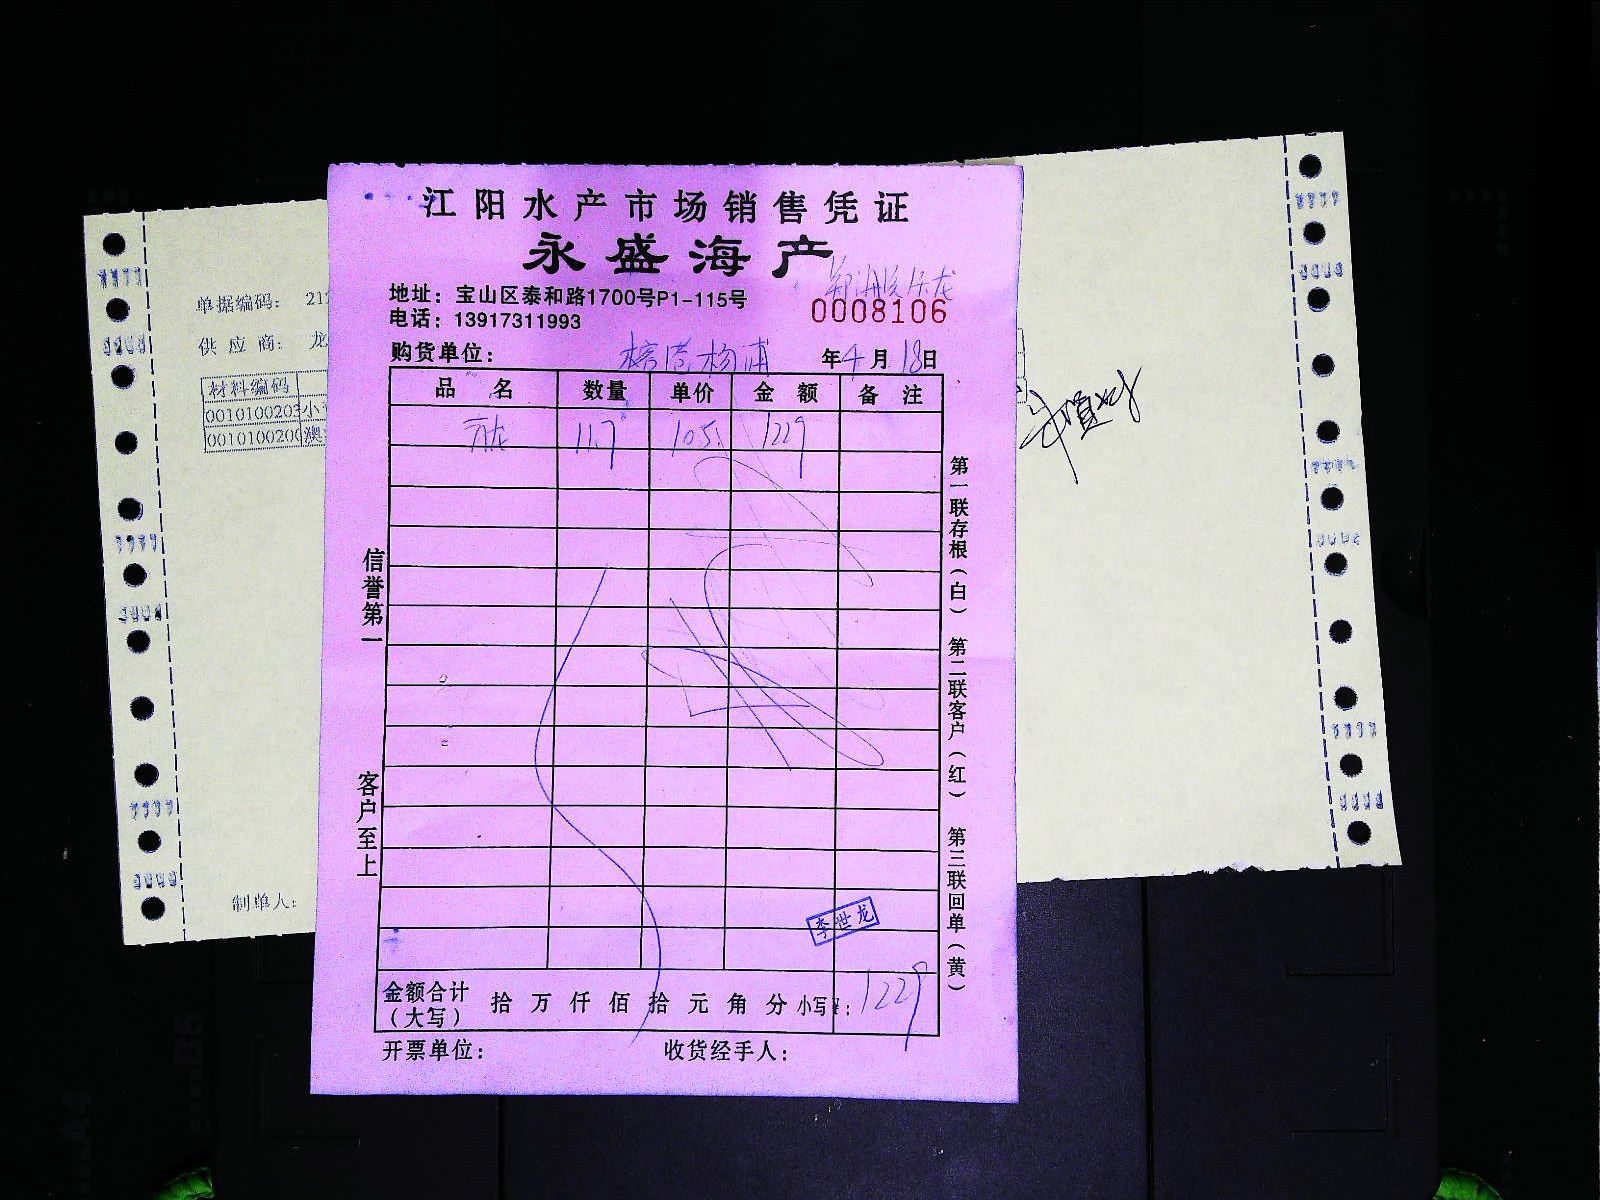 江阳水产市场销售凭证
永盛海产
地址：宝山区泰和路1700号P1-115号
0008106
电话：13917311993
购货单位： 杨浦 年4月18日
品 名 数量 单价 金 额 备 注
11.7 105 1229
信誉第一
客户至上
第一联存根（白） 第二联客户（红） 第三联回单（黄）
李世龙
金额合计（大写） 拾 万 仟 佰 拾 元 角 分 小写¥： 1229
开票单位： 收货经手人：
单据编码： 21
供 应 商： 龙
材料编码
0010100203 小
001010020 澳
制单人：